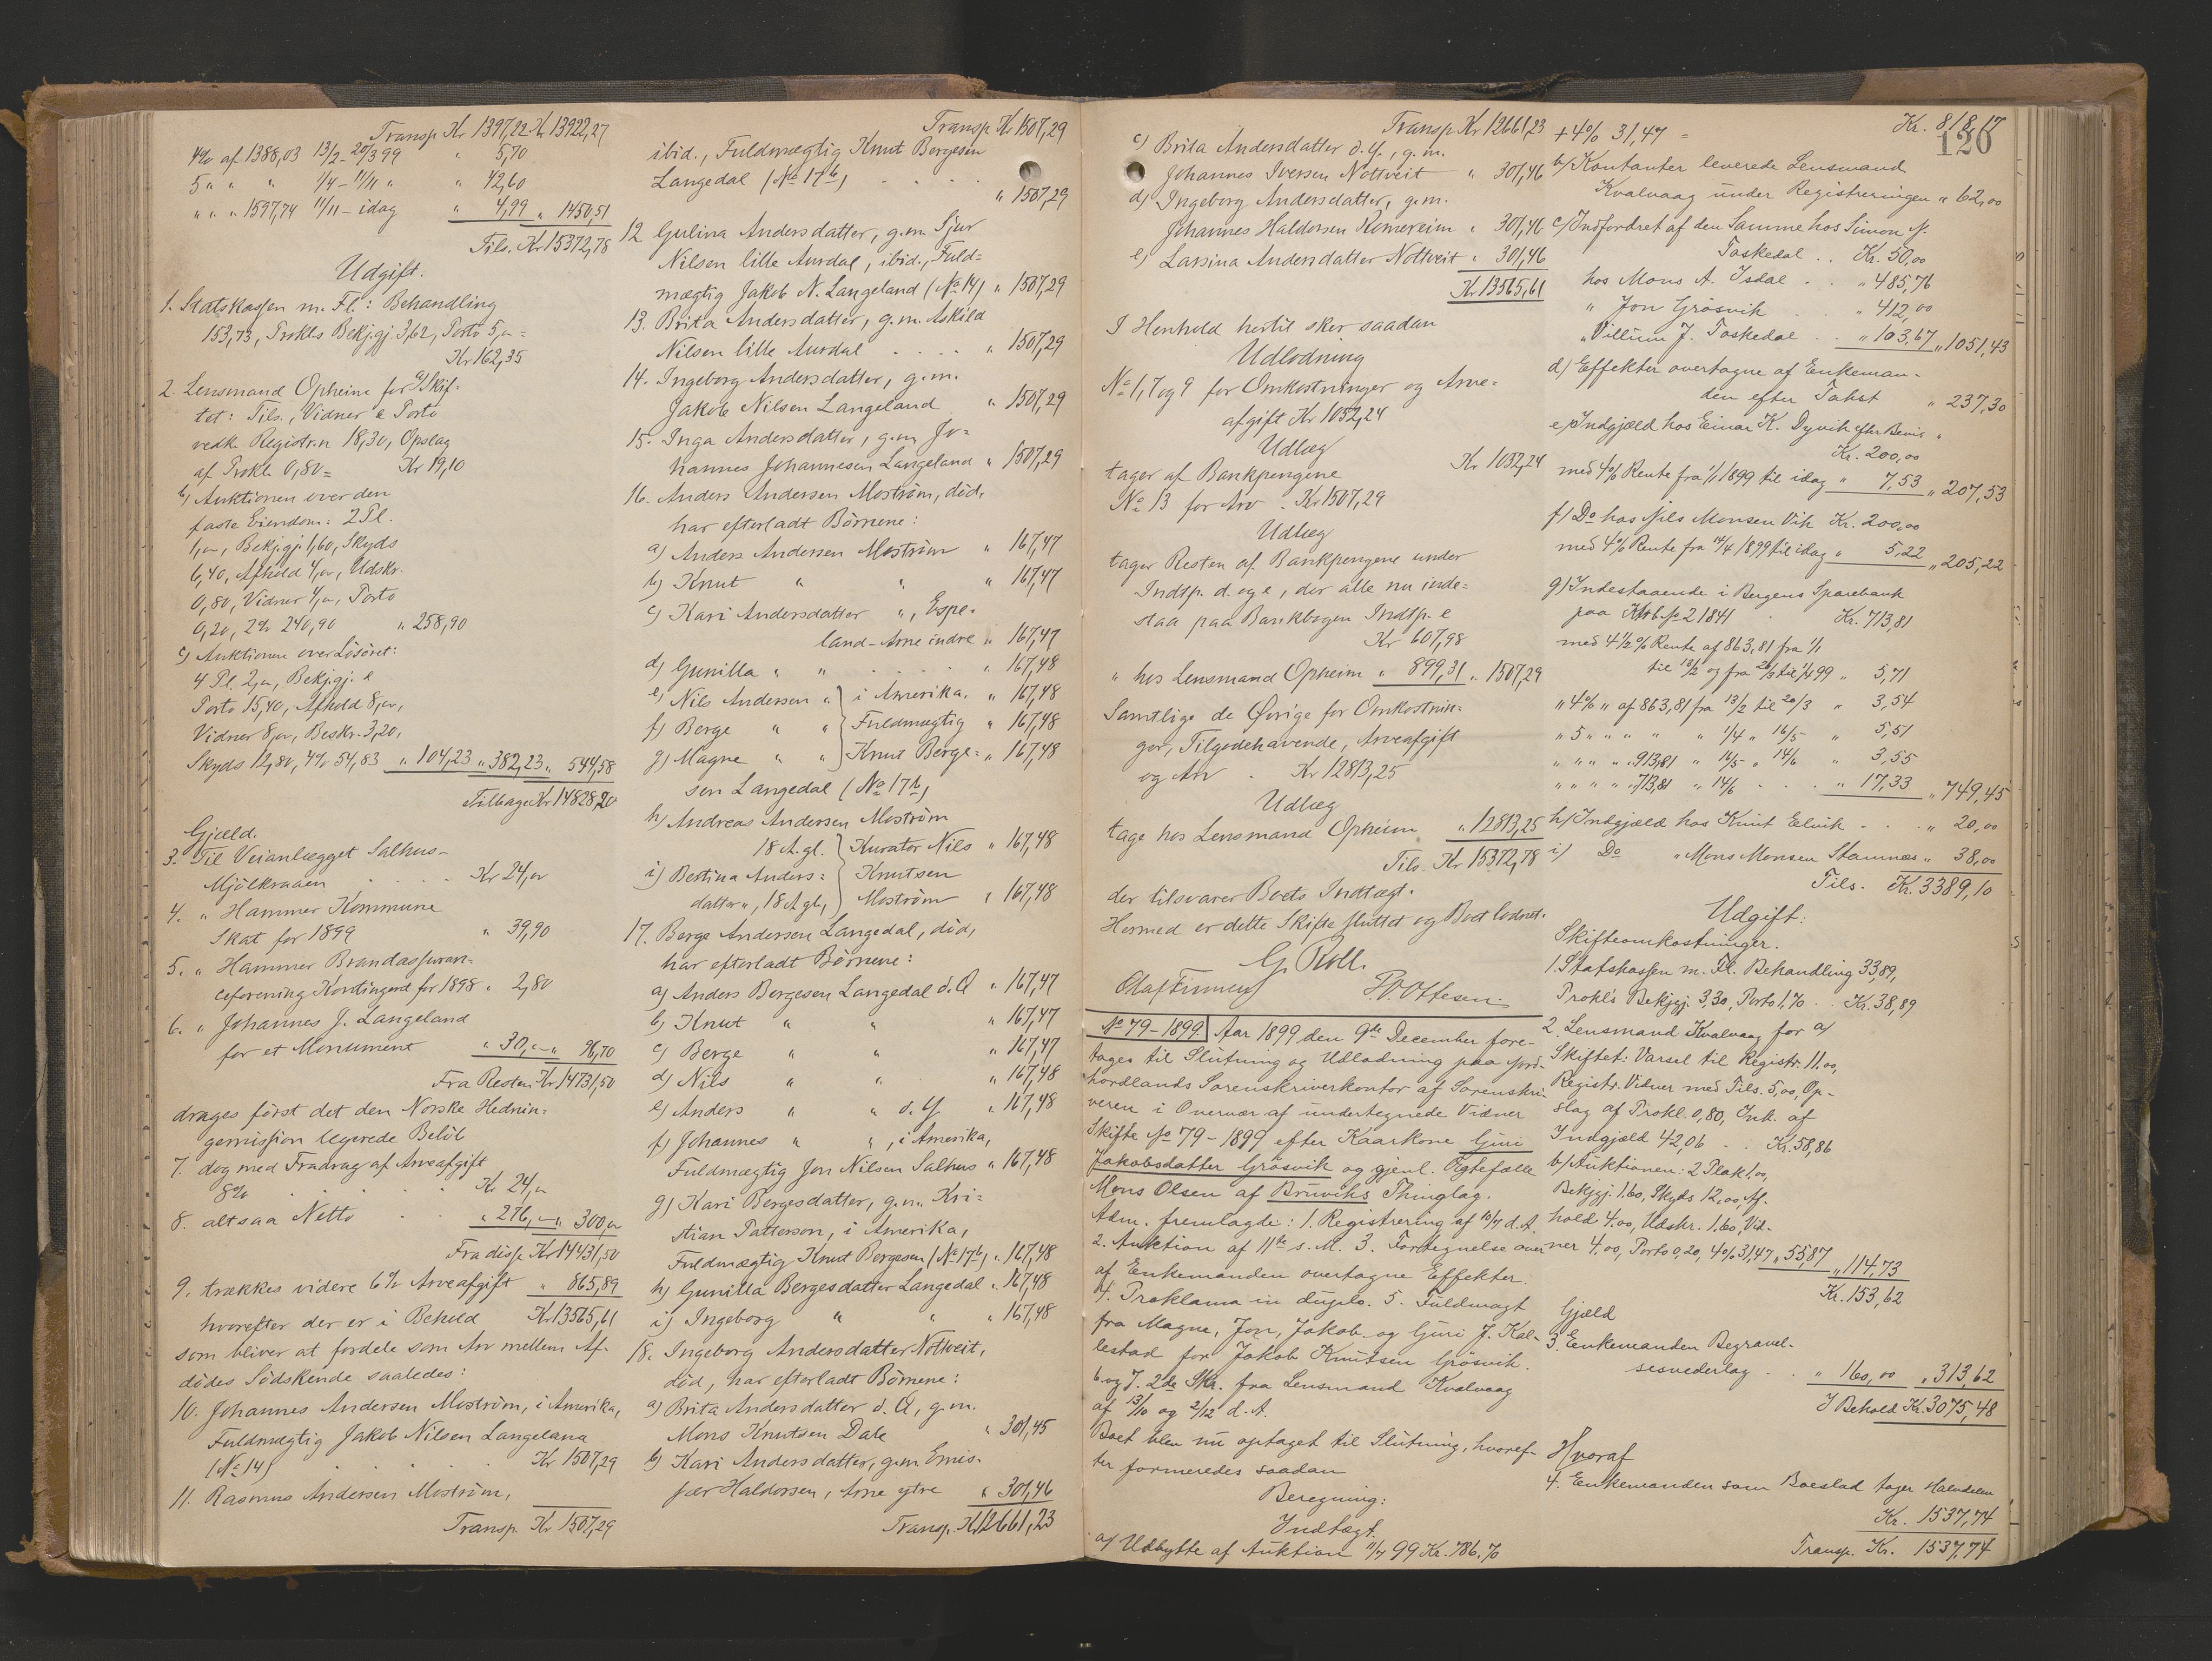 Transp. Kr 1397,22. Kr 13922,27
4% af 1388,03 13/2 - 20/3 99 " 5,70
5 " " " 1/4 - 11/11 " " 42,60
" " " 1597,74 11/11 - idag " 4,99 " 1450,51
Tils. Kr 15372,78
Udgift.
1. Statskassen m. Fl.: Behandling
153,73, Prokls Bekjgj. 3,62, Porto 5,00 =
Kr 162,35
2. Lensmand Opheim for a) Skif-
tet: Tils., Vidner & Porto
vedk. Registr.n 18,30, Opslag
af Prokl. 0,80 = Kr 19,10
b) Auktionen over den
faste Eiendom: 2 Pl.
1,00, Bekjgj. 1,60, Skyds
6,40, Afhold 4,00, Udskr.
0,80, Vidner 4,00, Porto
0,20, 2% 240,90 " 258,90
c) Auktionen over Løsöret:
4 Pl. 2,00, Bekjgj. &
Porto 15,40, Afhold 8,00,
Vidner 8,00, Beskr. 3,20,
Skyds 12,80, 4% 54,83 " 104,23 " 382,23 " 544,58
Tilbage Kr 14828,20
Gjæld.
3. Til Veianlægget Salhus-
Mjölkraaen . . . . Kr 24,00
4. " Hammer Kommune
Skat for 1899 " 39,90
5. " Hammer Brandassuran-
ceforening Kontingent for 1898 " 2,80
6. " Johannes J. Langeland
for et Monument " 30,00 " 96,70
Fra Resten Kr 14731,50
drages först det den Norske Hednin-
gemission legerede Belöb
7. dog med Fradrag af Arveafgift
8% . . . . Kr 24,00
8. altsaa Netto . . " 276,00 " 300,00
Fra disse Kr 14431,50
9. trækkes videre 6% Arveafgift " 865,89
hvorefter der er i Behold Kr 13565,61
som bliver at fordele som Arv mellem Af-
dödes Södskende saaledes:
10. Johannes Andersen Moström, i Amerika,
Fuldmægtig Jakob Nilsen Langeland
(No 14) . . . Kr 1507,29
11. Rasmus Andersen Moström,
Transp. Kr 1507,29
Transp. Kr 1507,29
ibid., Fuldmægtig Knut Bergesen
Langedal (No 17b) . . . . " 1507,29
12 Gulina Andersdatter, g.m. Sjur
Nilsen lille Aurdal, ibid., Fuld-
mægtig Jakob N. Langeland (No 14) " 1507,29
13. Brita Andersdatter, g.m. Askild
Nilsen lille Aurdal . . . . " 1507,29
14. Ingeborg Andersdatter, g.m.
Jakob Nilsen Langeland " 1507,29
15. Inga Andersdatter, g.m. Jo-
hannes Johannesen Langeland " 1507,29
16. Anders Andersen Moström, död,
har efterladt Börnene:
a) Anders Andersen Moström " 167,47
b) Knut " " " 167,47
c) Kari Andersdatter ", Espe-
land-Arne indre " 167,47
d) Gunilla " " . . . . " 167,48
e) Nils Andersen " i Amerika. " 167,48
f) Berge " " Fuldmægtig " 167,48
g) Magne " " Knut Berge- " 167,48
sen Langedal (No 17b)
h) Andreas Andersen Moström
18 A. gl. Kurator Nils " 167,48
i) Bertina Anders- Knutsen
datter ", 18 A gl, Moström " 167,48
17. Berge Andersen Langedal, död,
har efterladt Börnene:
a) Anders Bergesen Langedal d. Æ " 167,47
b) Knut " " " 167,47
c) Berge " " " 167,47
d) Nils " " " 167,48
e) Anders " " d. Y. " 167,48
f) Johannes " ", i Amerika,
Fuldmægtig Jon Nilsen Salhus " 167,48
g) Kari Bergesdatter, g.m. Kri-
stian Patterson, i Amerika,
Fuldmægtig Knut Bergesen (No 17b) " 167,48
h) Gunilla Bergesdatter Langedal " 167,48
i) Ingeborg " " " 167,48
18. Ingeborg Andersdatter Nottveit,
död, har efterladt Börnene:
a) Brita Andersdatter d. Æ, g.m.
Mons Knutsen Dale " 301,45
b) Kari Andersdatter, g.m. Emis-
sær Haldorsen, Arne ytre " 301,46
Transp. Kr 12661,23
Transp. Kr 12661,23
c) Brita Andersdatter d. Y., g.m.
Johannes Iversen Nottveit " 301,46
d) Ingeborg Andersdatter, g.m.
Johannes Haldorsen Romereim " 301,46
e) Larsina Andersdatter Nottveit " 301,46
Kr 13565,61
I Henhold hertil sker saadan
Udlodning
No 1, 7 og 9 for Omkostninger og Arve-
afgift Kr 1052,24
Udlæg
tager af Bankpengene Kr 1052,24
No 13 for Arv . Kr 1507,29
Udlæg
tager Resten af Bankpengene under
Indtp. d. og e, der alle nu inde-
staa paa Bankbogen Indtp. e
Kr 607,98
" hos Lensmand Opheim " 899,31 " 1507,29
Samtlige de Øvrige for Omkostnin-
ger, Tilgodehavende, Arveafgift
og Arv . Kr 12813,25
Udlæg
tage hos Lensmand Opheim " 12813,25
Tils. Kr 15372,78
der tilsvarer Boets Indtægt.
Hermed er dette Skifte sluttet og Boet loddet.
G. Roll.
Olaf P. O. Ottesen.
No 79-1899. Aar 1899 den 9de December fore-
tages til Slutning og Udlodning paa Nord-
hordlands Sorenskriverkontor af Sorenskri-
veren i Overvær af undertegnede Vidner
Skifte No 79-1899 efter Kaarkone Guri
Jakobsdatter Grösvik og gjenl. Ægtefælle
Mons Olsen af Bruviks Thinglag.
Adm. fremlagde: 1. Registrering af 10/7 d. A.
2. Auktion af 11te s. M. 3. Fortegnelse over
af Enkemanden overtagne Effekter.
4. Proklama in duplo. 5. Fuldmagt
fra Magne, Jon, Jakob og Guri J. Kal-
lestad for Jakob Knutsen Grösvik.
6. og 7. 2de Skr. fra Lensmand Kvalvaag
af 13/10 og 2/12 d. A.
Boet blev nu optaget til Slutning, hvoref-
ter formeredes saadan
Beregning:
Indtægt.
a) Udbytte af Auktion 11/7 99 Kr. 786,70
126
+ 4% 31,47 = Kr. 818,17
b) Kontanter leverede Lensmand
Kvalvaag under Registreringen " 62,00
c) Indfordret af den Samme hos Simon N.
Toskedal . . Kr. 50,00
hos Mons A. Isdal . . " 485,76
" Jon Grösvik . " 412,00
" Villum J. Toskedal . . " 103,67 " 1051,43
d) Effekter overtagne af Enkeman-
den efter Takst " 237,30
e) Indgjæld hos Einar K. Dyvik efter Bevis "
Kr. 200,00
med 4% Rente fra 1/1 1899 til idag " 7,53 " 207,53
f) Do hos Nils Monsen Vik Kr. 200,00
med 4% Rente fra 14/4 1899 til idag " 5,22 " 205,22
g) Indestaaende i Bergens Sparebank
paa Ktrb. No 21841 . Kr. 713,81
med 4 1/2 % Rente af 863,81 fra 1/1
til 13/2 og fra 20/3 til 1/4 99 " 5,71
" 4% " af 863,81 fra 13/2 til 20/3 " 3,54
" 5 " " " " 1/4 " 16/5 " 5,51
" " " " 913,81 " 16/5 " 14/6 " 3,55
" " " " 713,81 " 14/6 . . . " 17,33 " 749,45
h) Indgjæld hos Knut Elvik . . . " 20,00
i) Do " Mons Monsen Stamnæs " 38,00
Tils. Kr. 3389,10
Udgift:
Skifteomkostninger.
1. Statskassen m. Fl. Behandling 33,89,
Prokl's Bekjgj. 3,30, Porto 1,70 . . Kr. 38,89
2. Lensmand Kvalvaag for a)
Skiftet: Varsel til Registr. 11,00,
Registr. Vidner med Tils. 5,00, Op-
slag af Prokl. 0,80, Ink. af
Indgjæld 42,06 . . Kr. 58,86
b) Auktionen: 2 Plak 1,00,
Bekjgj. 1,60, Skyds 12,00, Af-
hold 4,00, Udskr. 1,60, Vid-
ner 4,00, Porto 0,20, 4% 31,47 " 55,87 " 114,73
Kr. 153,62
Gjæld
3. Enkemanden Begravel-
sesvederlag . . " 160,00 " 313,62
I Behold Kr. 3075,48
Hvoraf
4. Enkemanden som Boeslod tager Halvdelen
Kr. 1537,74
Transp. Kr. 1537,74